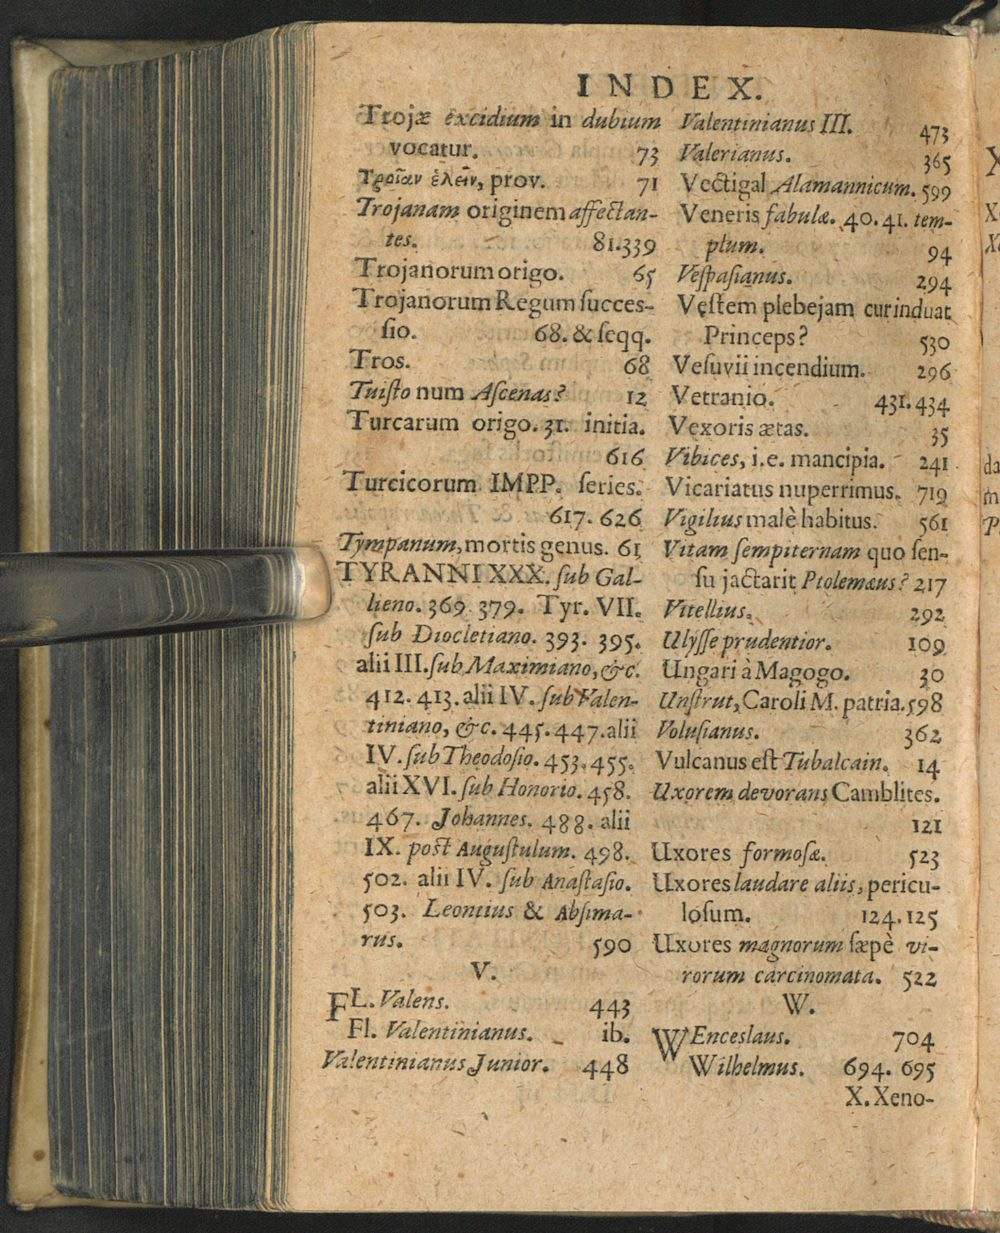 INDEX.
Trojæ excidium in dubium
vocatur. 73
Τροῖαν ἑλεῖν, prov. 71
Trojanam originem affectan-
tes. 81.339
Trojanorum origo. 65
Trojanorum Regum succes-
sio. 68. & seqq.
Tros. 68
Tuisto num Ascenas? 12
Turcarum origo. 31. initia.
616
Turcicorum IMPP. series.
617. 626
Tympanum, mortis genus. 61
TYRANNI XXX. sub Gal-
lieno. 369 379. Tyr. VII.
sub Diocletiano. 393. 395.
alii III. sub Maximiano, &c.
412. 413. alii IV. sub Valen-
tiniano, &c. 445. 447. alii
IV. sub Theodosio. 453. 455.
alii XVI. sub Honorio. 458.
467. Johannes. 488. alii
IX. post Augustulum. 498.
502. alii IV. sub Anastasio.
503. Leontius & Absima-
rus. 590
V.
FL. Valens. 443
Fl. Valentinianus. ib.
Valentinianus Junior. 448
Valentinianus III. 473
Valerianus. 365
Vectigal Alamannicum. 599
Veneris fabulæ. 40. 41. tem-
plum. 94
Vespasianus. 294
Vestem plebejam cur induat
Princeps? 530
Vesuvii incendium. 296
Vetranio. 431. 434
Vexoris ætas. 35
Vibices, i.e. mancipia. 241
Vicariatus nuperrimus. 719
Vigilius malè habitus. 561
Vitam sempiternam quo sen-
su jactarit Ptolemæus? 217
Vitellius. 292
Ulysse prudentior. 109
Ungari à Magogo. 30
Unstrut, Caroli M. patria. 598
Volusianus. 362
Vulcanus est Tubalcain. 14
Uxorem devorans Camblites.
121
Uxores formosæ. 523
Uxores laudare aliis, pericu-
losum. 124. 125
Uxores magnorum sæpè vi-
rorum carcinomata. 522
W.
WEnceslaus. 704
Wilhelmus. 694. 695
X. Xeno-